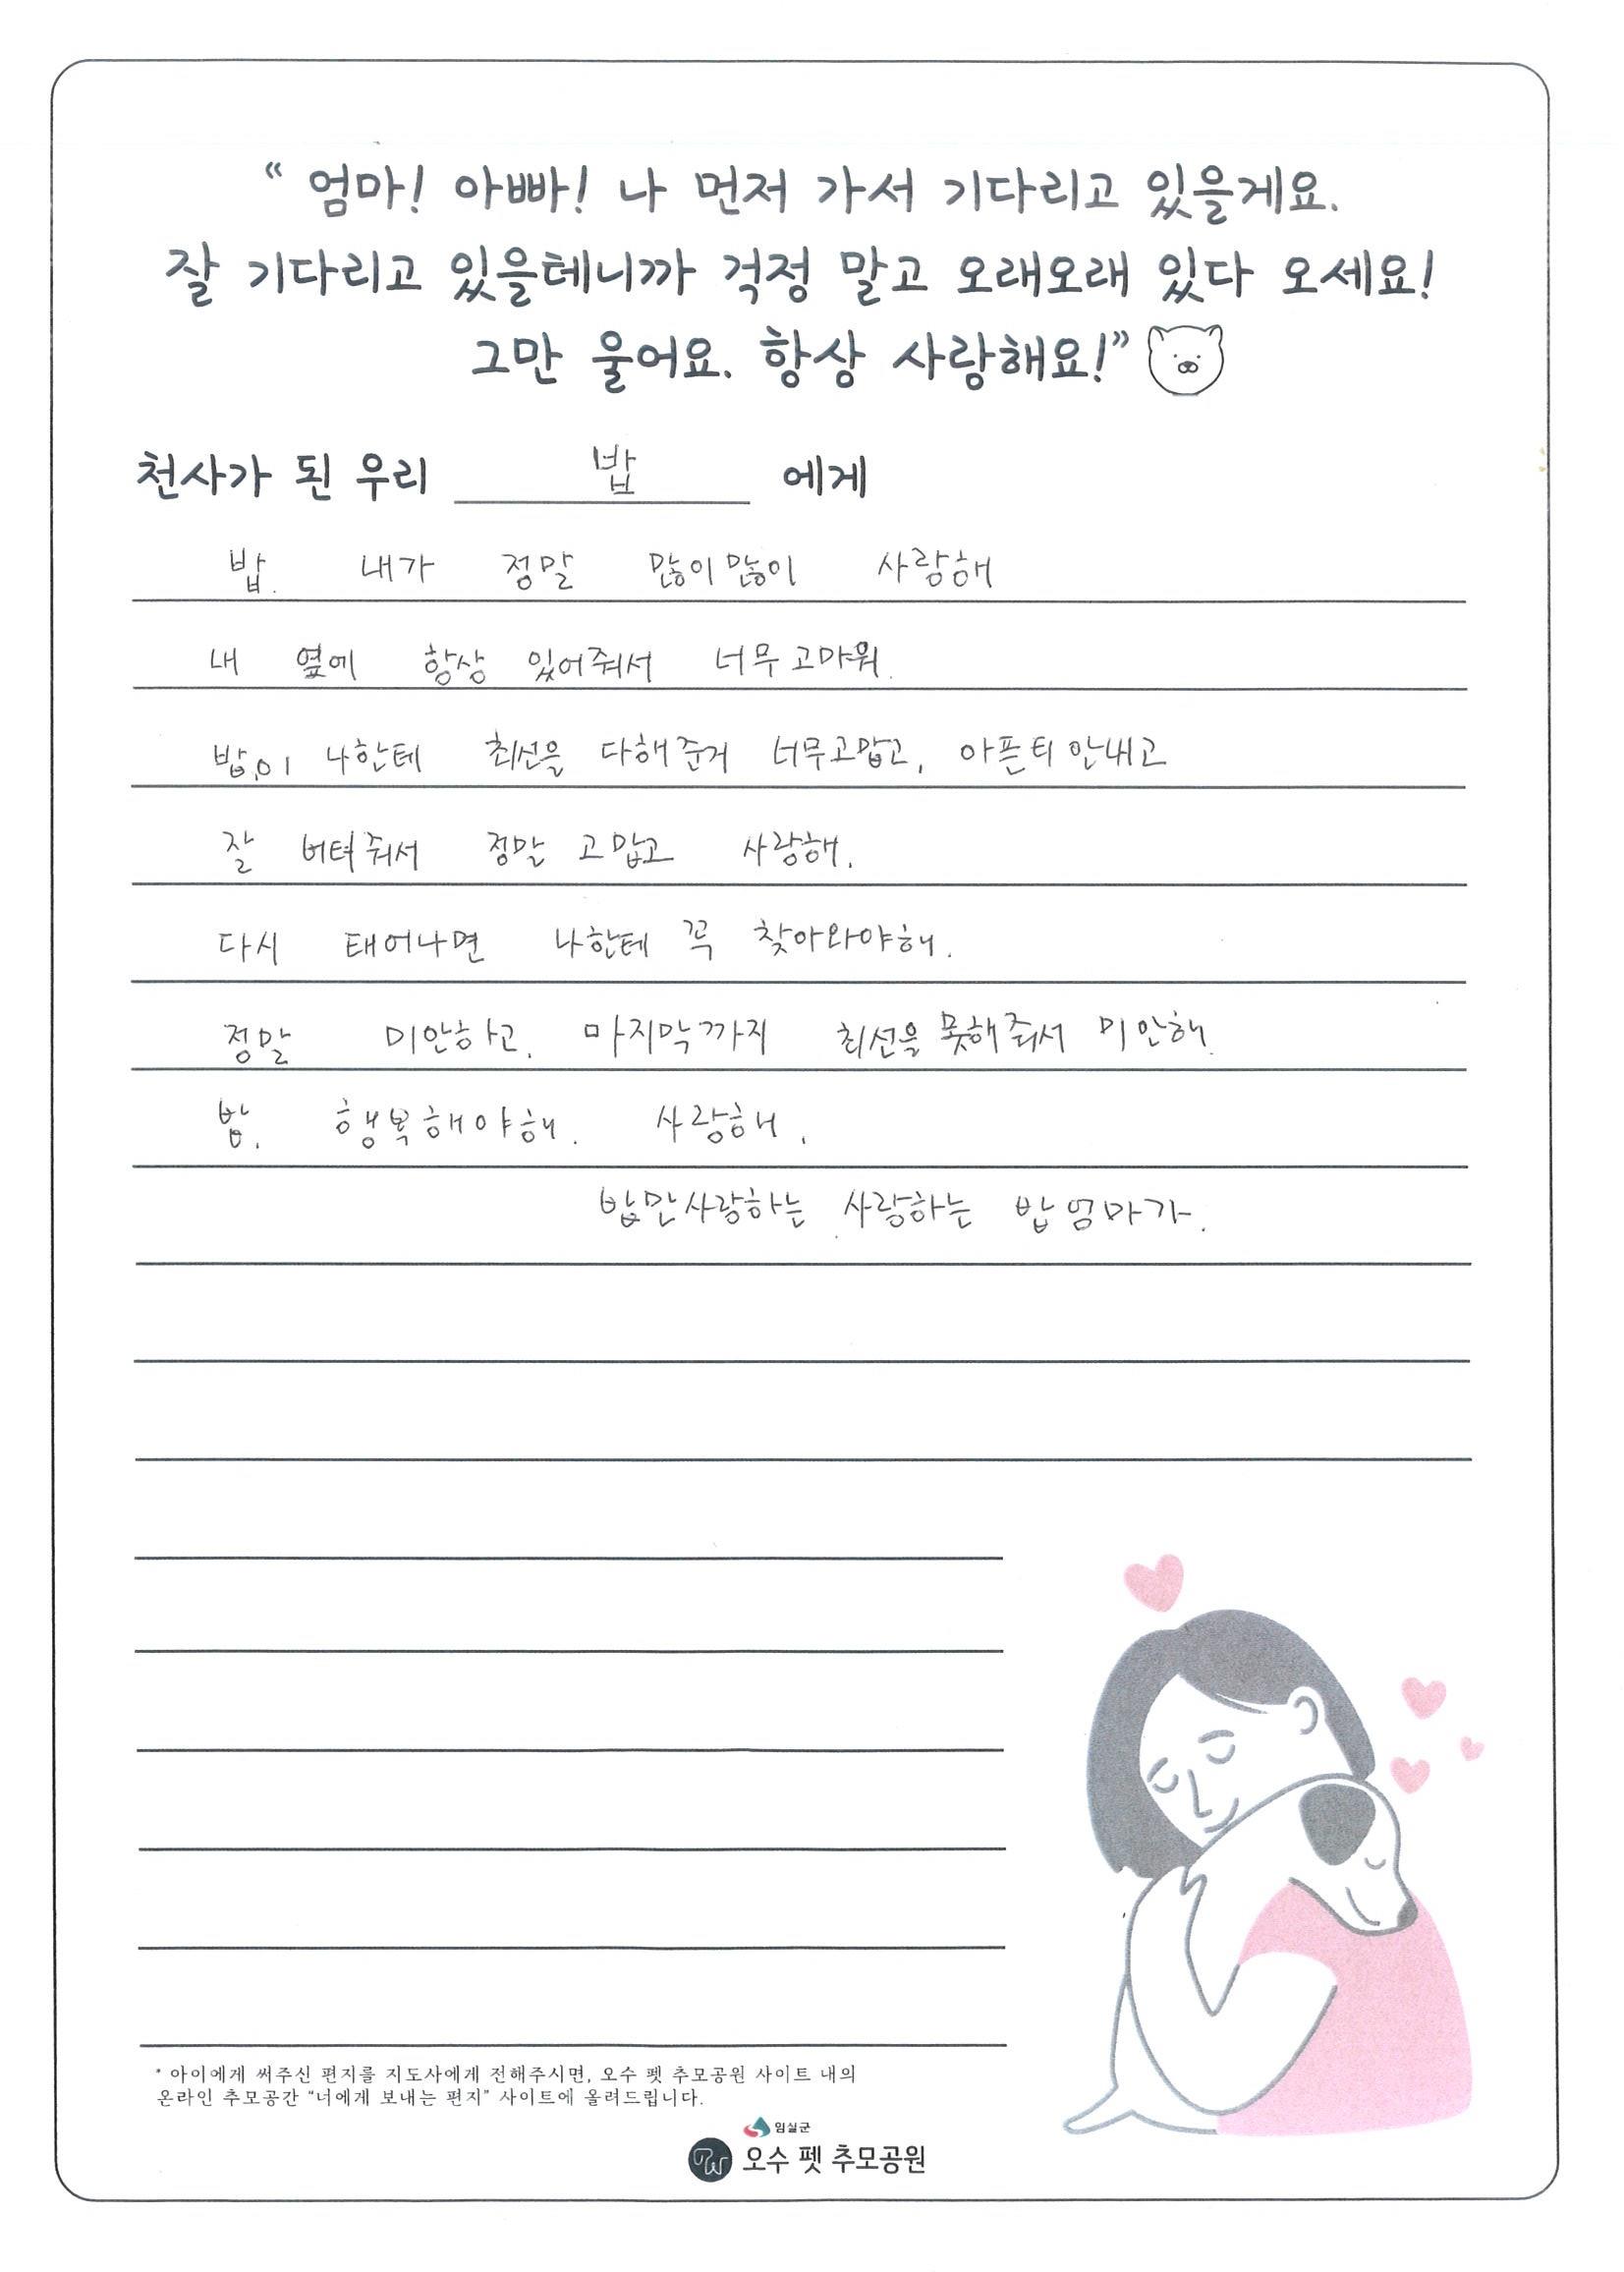 “ 엄마! 아빠! 나 먼저 가서 기다리고 있을게요.
잘 기다리고 있을테니까 걱정 말고 오래오래 있다 오세요!
그만 울어요. 항상 사랑해요!”
천사가 된 우리 밥 에게
밥. 내가 정말 많이많이 사랑해
내 옆에 항상 있어줘서 너무 고마워.
밥이 나한테 최선을 다해준거 너무고맙고, 아픈티안내고
잘 버텨줘서 정말 고맙고 사랑해.
다시 태어나면 나한테 꼭 찾아와야해.
정말 미안하고. 마지막까지 최선을 못해줘서 미안해.
밥. 행복해야해. 사랑해.
밥만사랑하는 사랑하는 밥엄마가.
* 아이에게 써주신 편지를 지도사에게 전해주시면, 오수 펫 추모공원 사이트 내의
온라인 추모공간 “너에게 보내는 편지” 사이트에 올려드립니다.
임실군
PW 오수 펫 추모공원